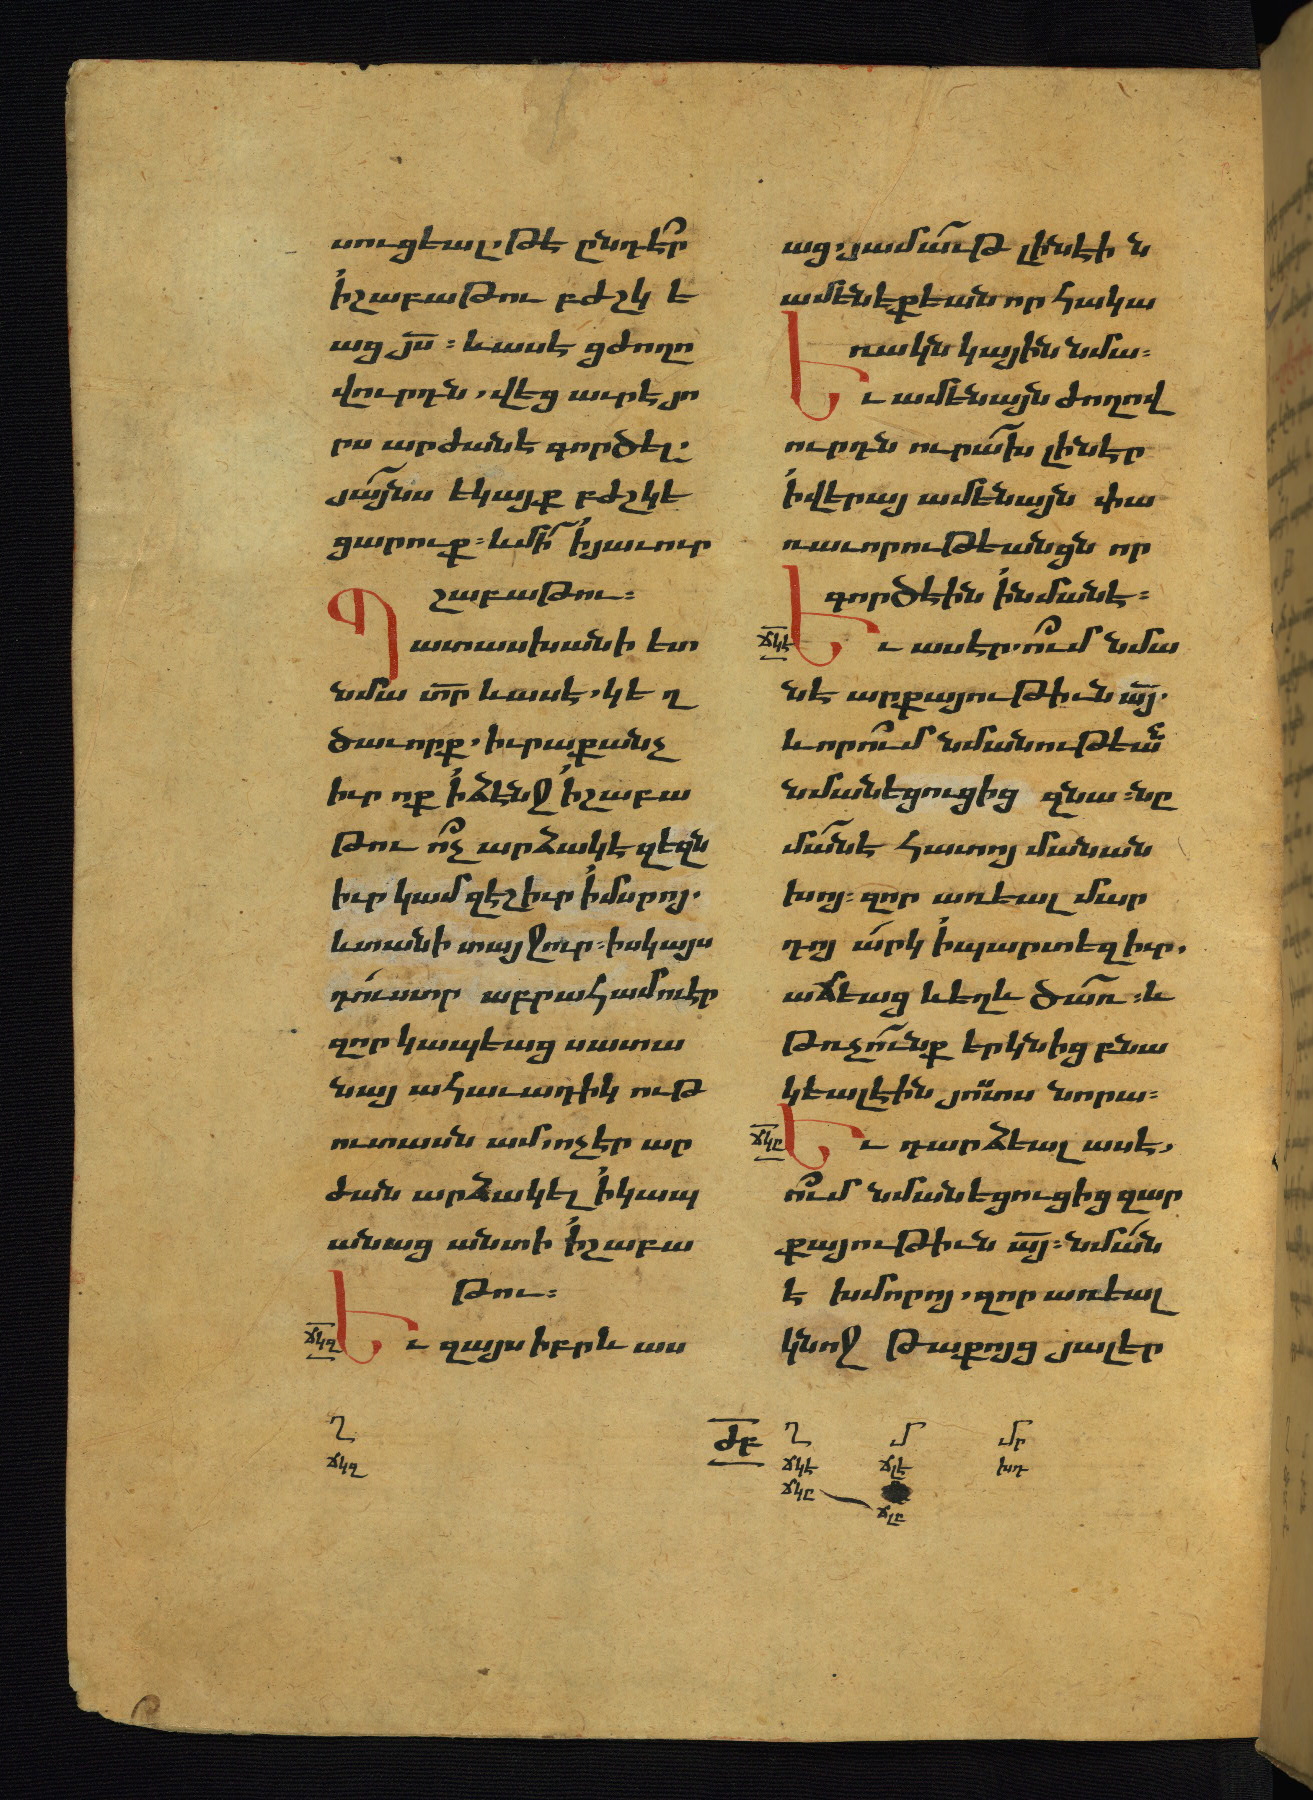 սուցեալ. թէ ընդէ՞ր
ի՛շաբաթու բժշկե
աց յս : ևասէ ցժողո
վուրդն, վեց աւրէ յո
րս արժանէ գործել.
յա՛յնս եկայք բժշկե
ցարուք : ևմի՛ ի՛յաւուր
շաբաթու :
Պատասխանի ետ
նմա տր ևասէ, կե ղ
ծաւորք, իւրաքանչ
իւր ոք ի՛ձէնջ ի՛շաբա
թու ո՞չ արձակէ զեզն
իւր կամ զէշիւր ի՛մսրոյ.
ևտանի տայ ջուր : իսկայս
դուստր աբրահամուէր
զոր կապեաց սատա
նայ ահաւադիկ ութ
ուտասն ամ, ոչէր ար
ժան արձակել ի՛կապ
անաց անտի ի՛շաբա
թու :
ՃԿԶ
Եւ զայս իբրև աս
աց, յամաւթ լինէի ն
ամենեքեան որ հակա
ռակն կային նմա :
Եւ ամենայն ժողով
ուրդն ուրախ լինէր
ի՛վերայ ամենայն փա
ռաւորութեանցն որ
գործէին ի՛նմանէ :
ՃԿԷ
Եւ ասէր. ո՞ւմ նմա
նէ արքայութիւն այ.
ևորո՞ւմ նմանութեա՛ն
նմանեցուցից զնա : նը
մանէ հատոյ մանան
խոյ : զոր առեալ մար
դոյ արկ ի՛պարտէզ իւր,
աճեաց ևեղև ծառ, և
թռչունք երկնից բնա
կեալէին յոստս նորա :
ՃԿԸ
Եւ դարձեալ ասէ,
ո՞ւմ նմանեցուցից զար
քայութիւն այ : նման
է խմորոյ, զոր առեալ
կնոջ թաքոյց յալեր
Ղ
ՃԿԶ
ԺԲ Ղ Մ Մր
ՃԿԷ ՃԼԷ ԽԴ
ՃԿԸ ՃԼԸ